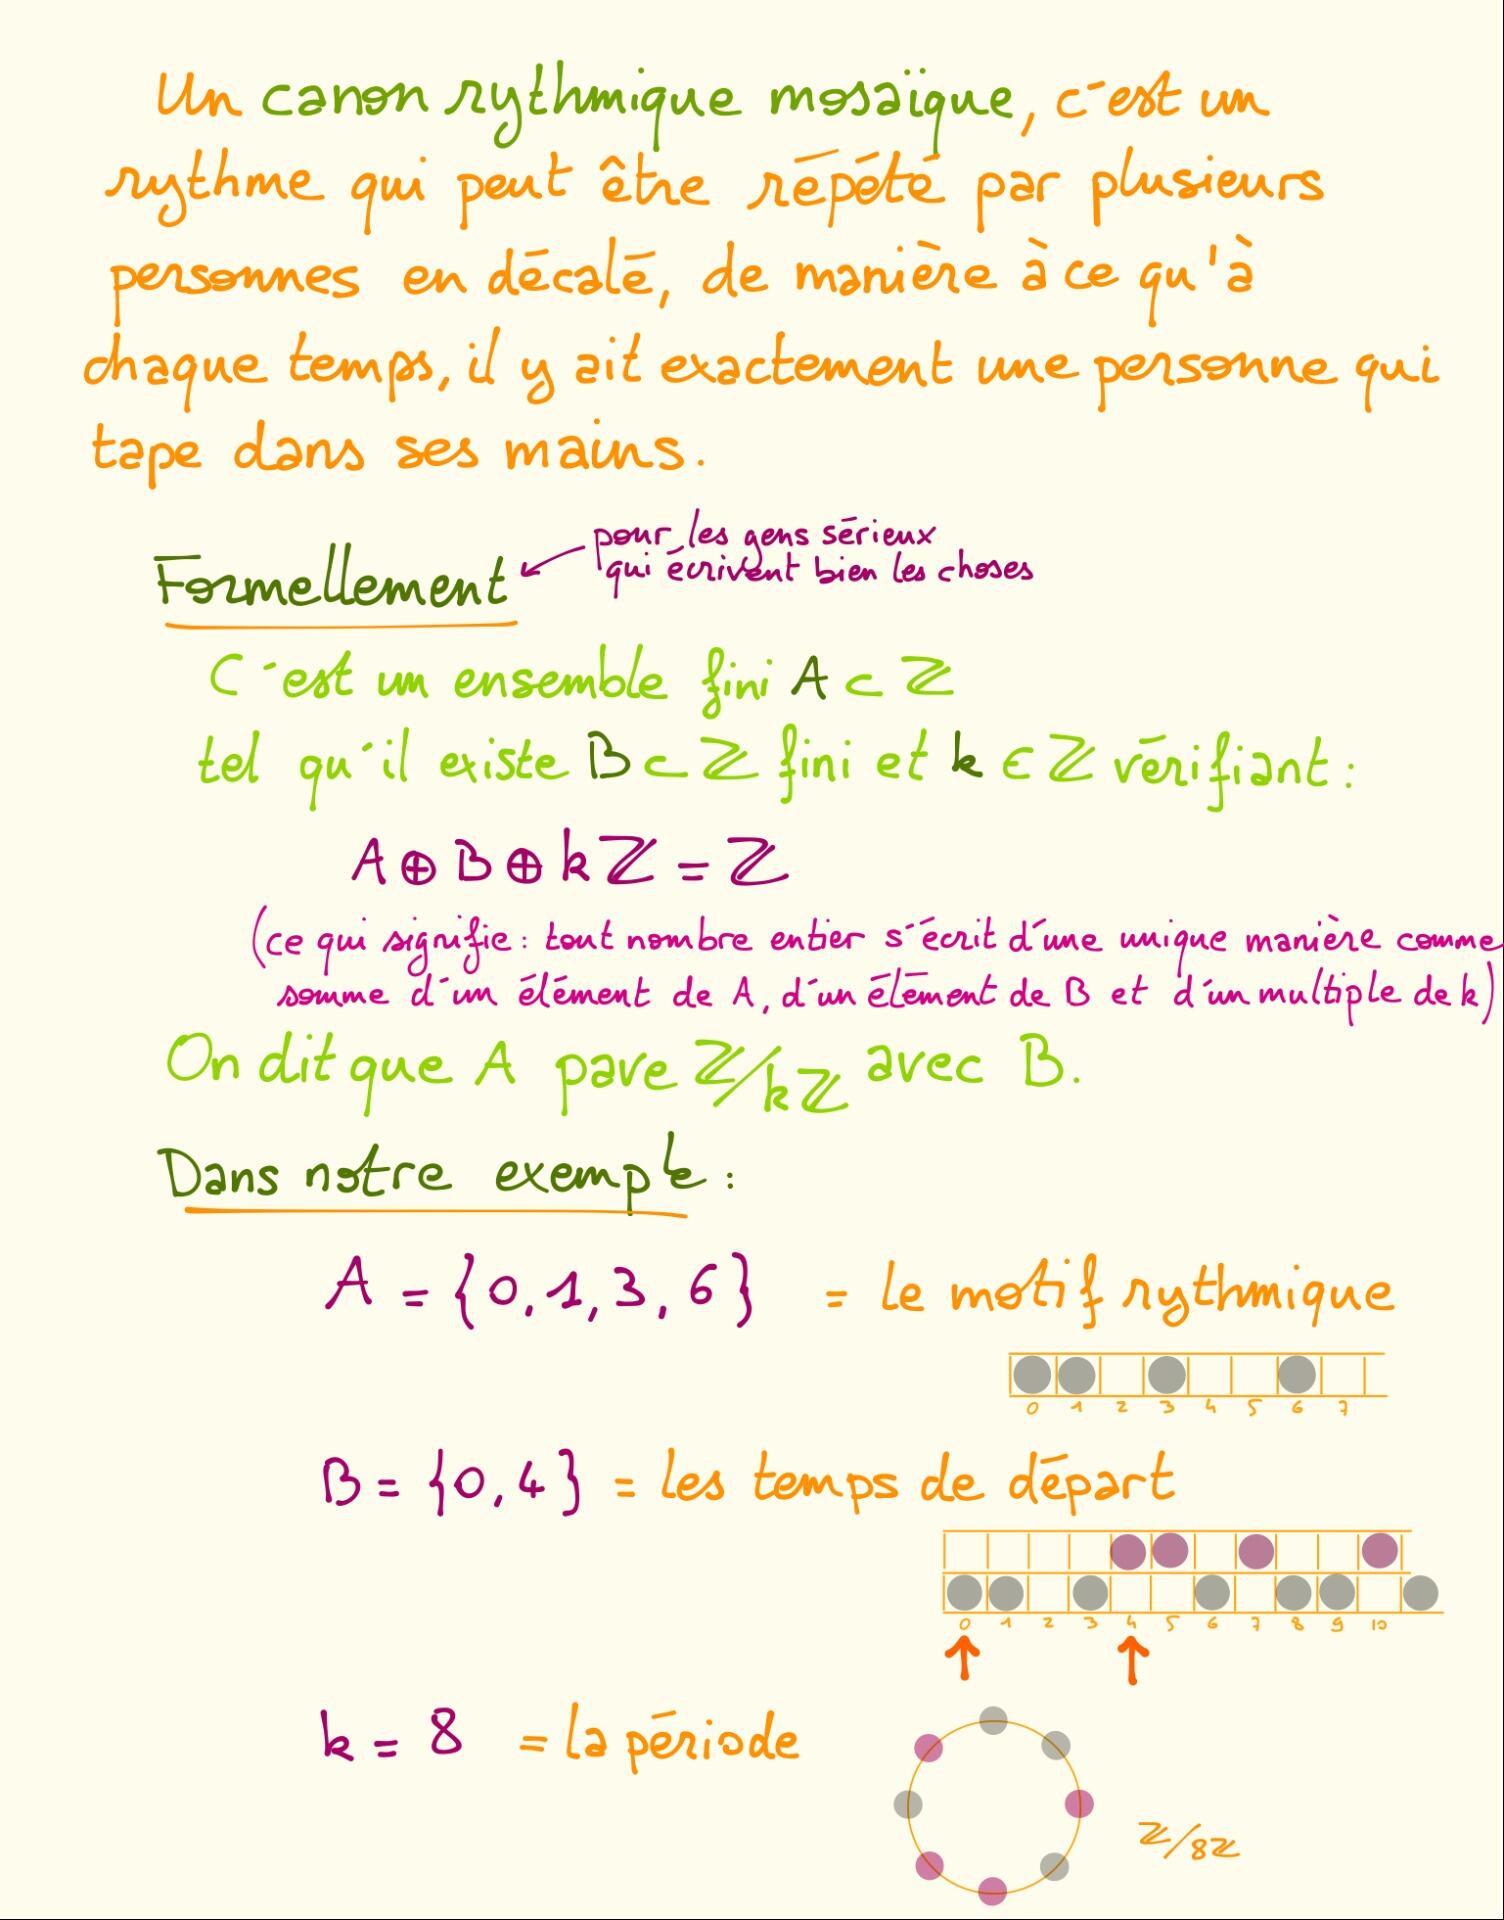 Un canon rythmique mosaïque, c'est un
rythme qui peut être répété par plusieurs
personnes en décalé, de manière à ce qu'à
chaque temps, il y ait exactement une personne qui
tape dans ses mains.
pour les gens sérieux
qui écrivent bien les choses
Formellement
C'est un ensemble fini A ⊂ ℤ
tel qu'il existe B ⊂ ℤ fini et k ∈ ℤ vérifiant :
A ⊕ B ⊕ kℤ = ℤ
(ce qui signifie : tout nombre entier s'écrit d'une unique manière comme
somme d'un élément de A, d'un élément de B et d'un multiple de k)
On dit que A pave ℤ/kℤ avec B.
Dans notre exemple :
A = {0, 1, 3, 6} = le motif rythmique
0 1 2 3 4 5 6 7
B = {0, 4} = les temps de départ
0 1 2 3 4 5 6 7 8 9 10
k = 8 = la période
ℤ/8ℤ